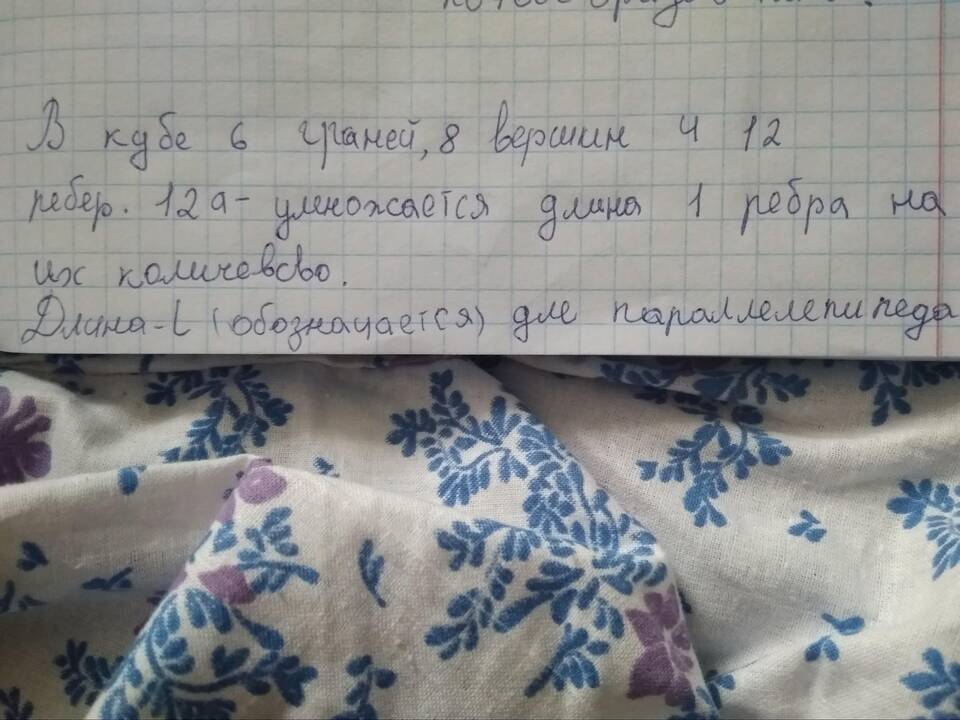 В кубе 6 граней, 8 вершин и 12
ребер. 12а- умножается длина 1 ребра на
их количевсво.
Длина-L (обозначается) для параллелепипеда